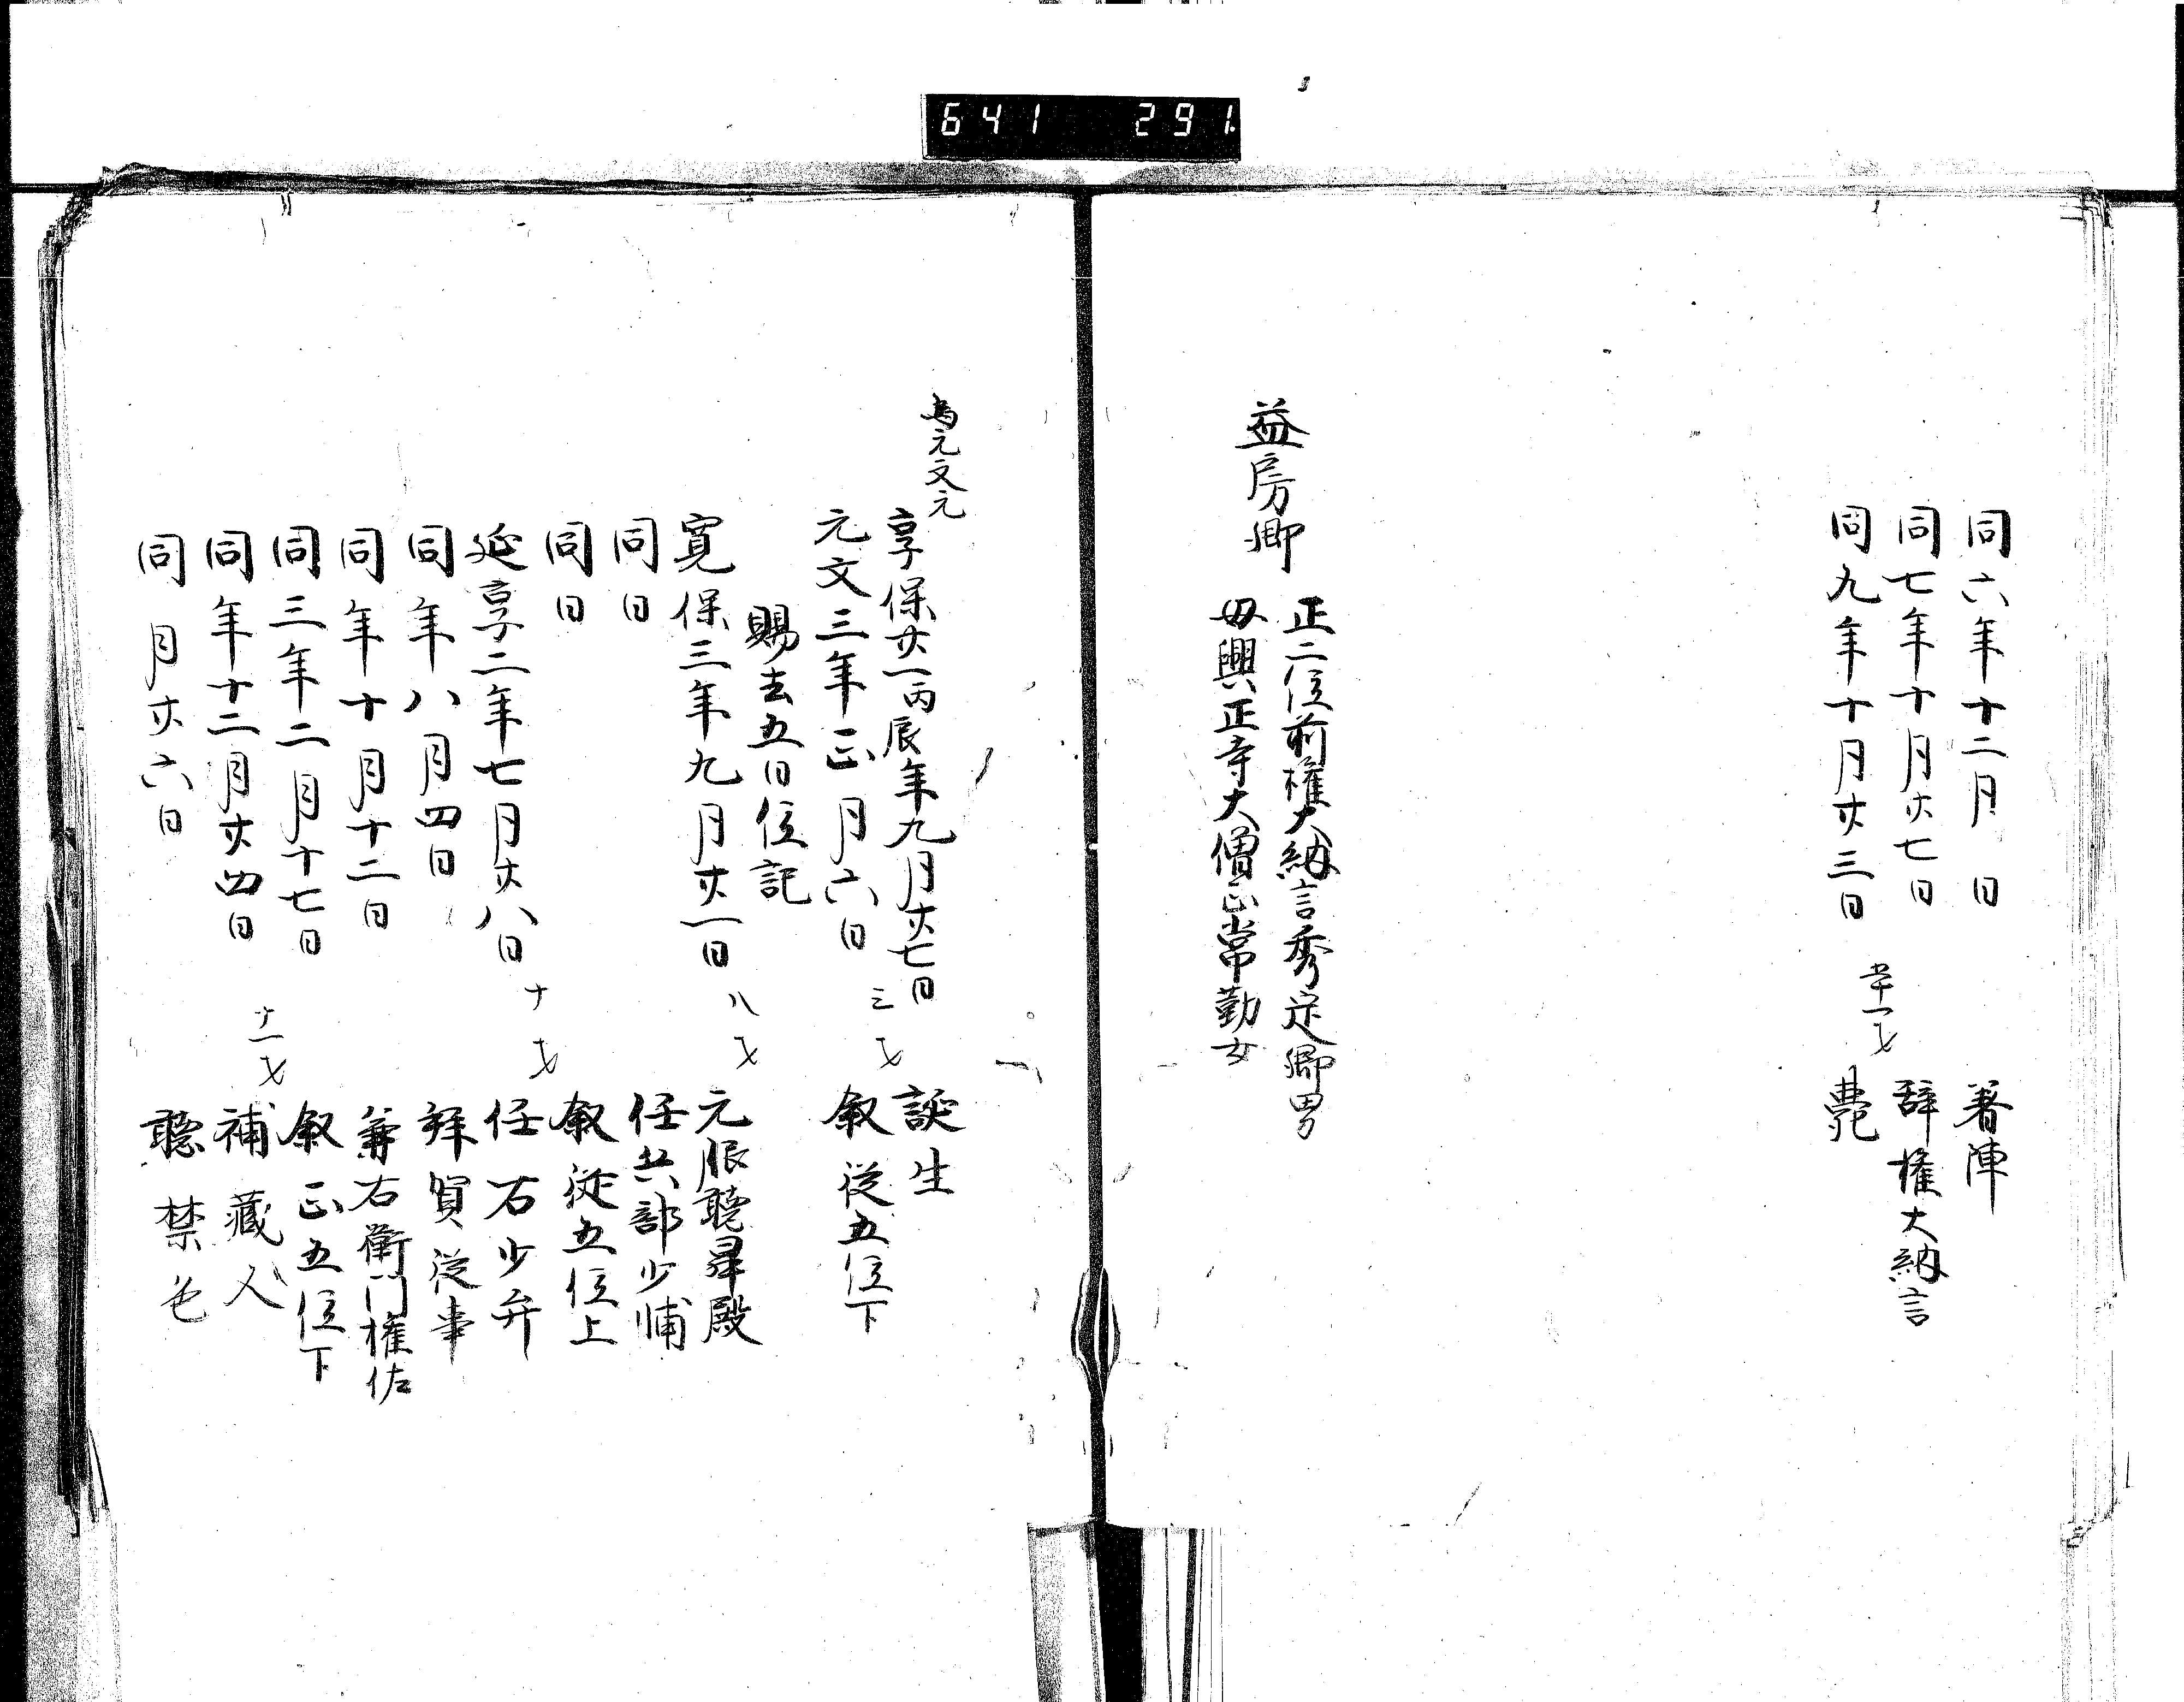 641 291
同六年十二月 日 著陣
同七年十月廿七日 辞権大納言
同九年十月廿三日 五十一才 薨
益房卿
正二位前権大納言秀定卿男
母興正寺大僧正常勤女
為元文元
享保廿一丙辰年九月廿七日 誕生
元文三年正月六日 三才 叙従五位下
賜去五日位記
寛保三年九月廿一日 八才 元服聴昇殿
同日 任兵部少輔
同日 叙従五位上
延享二年七月廿八日 十才 任右少弁
同年八月四日 拝賀従事
同年十月十二日 兼右衛門権佐
同三年二月十七日 叙正五位下
同年十二月廿四日 十一才 補蔵人
同月廿六日 聴禁色